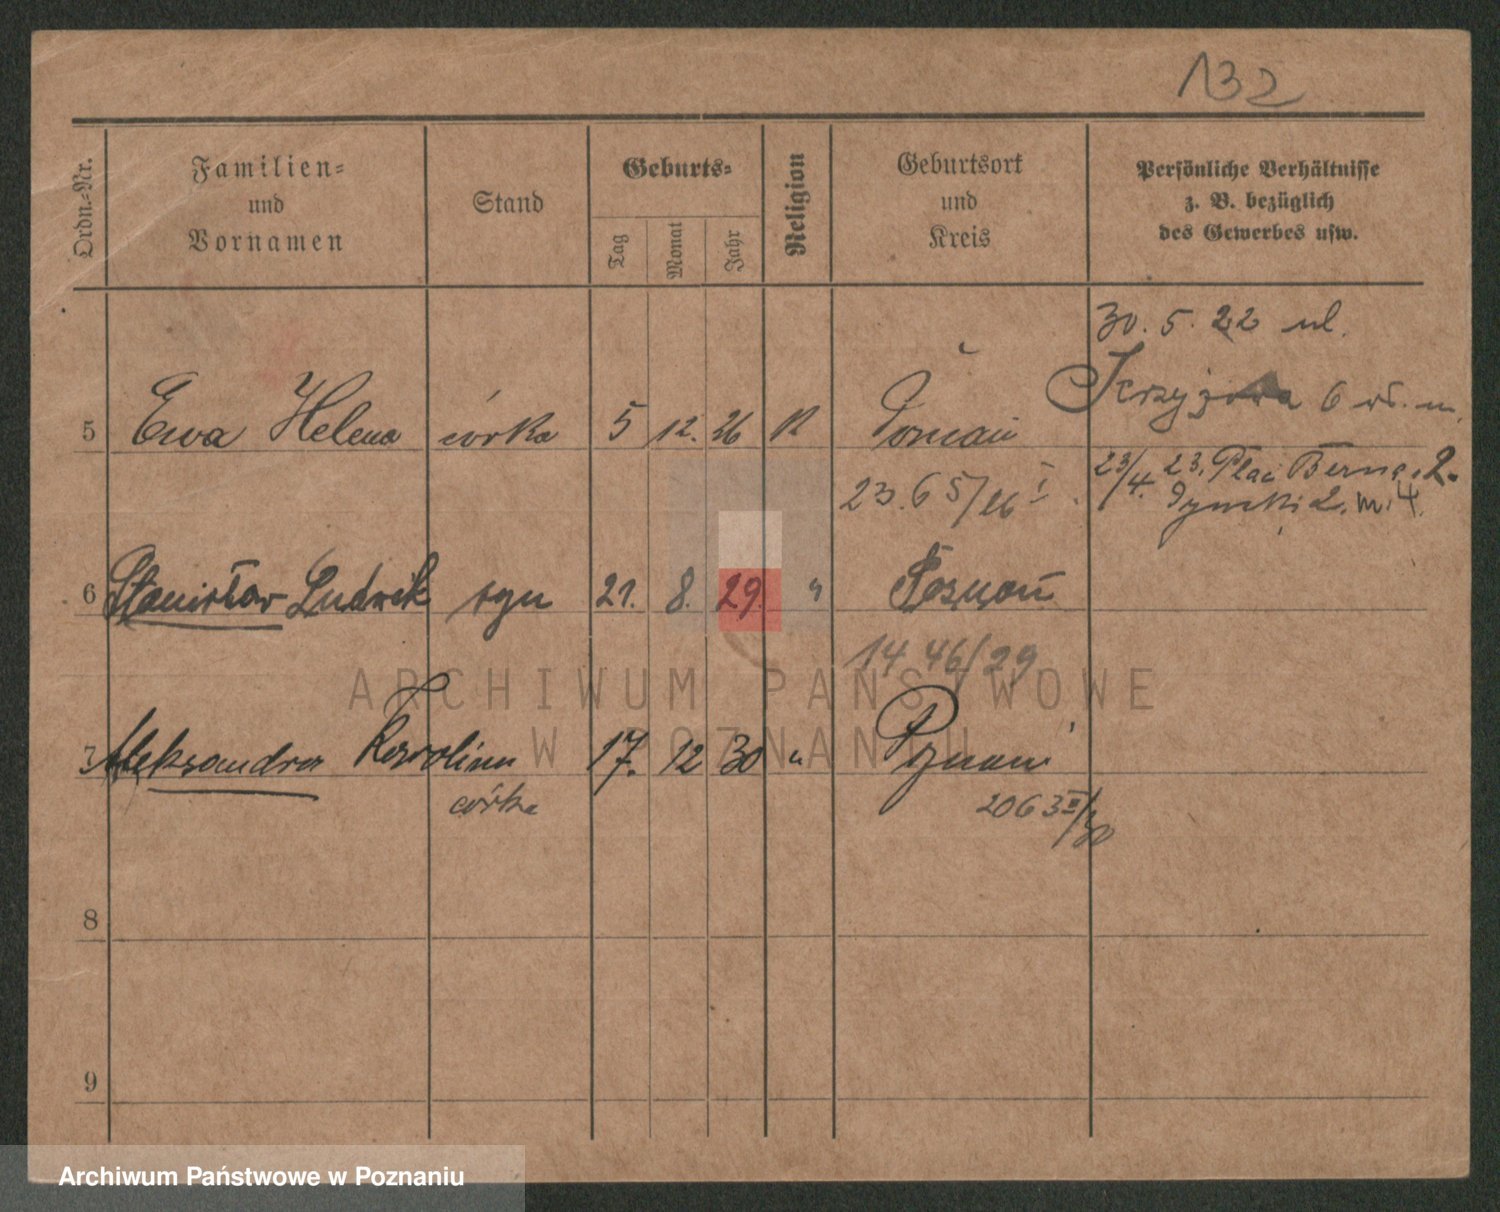 132
Ordn.=Nr.
Familien=
und
Vornamen
Stand
Geburts=
Tag
Monat
Jahr
Religion
Geburtsort
und
Kreis
Persönliche Verhältnisse
z. B. bezüglich
des Gewerbes usw.
30. 5. 22 ul.
Krzyżowa 6
5 Ewa Helena córka 5 12. 26 R Poznań
23/4. 23. Plac Bern. 2.
2. m. 4.
6 Stanisław Ludwik syn 21. 8. 29. " Poznań
1446/29
7 Aleksandra Karolina 17. 12 30 " Poznań
córka
2063 II/30
8
9
ARCHIWUM PAŃSTWOWE
W POZNANIU
Archiwum Państwowe w Poznaniu